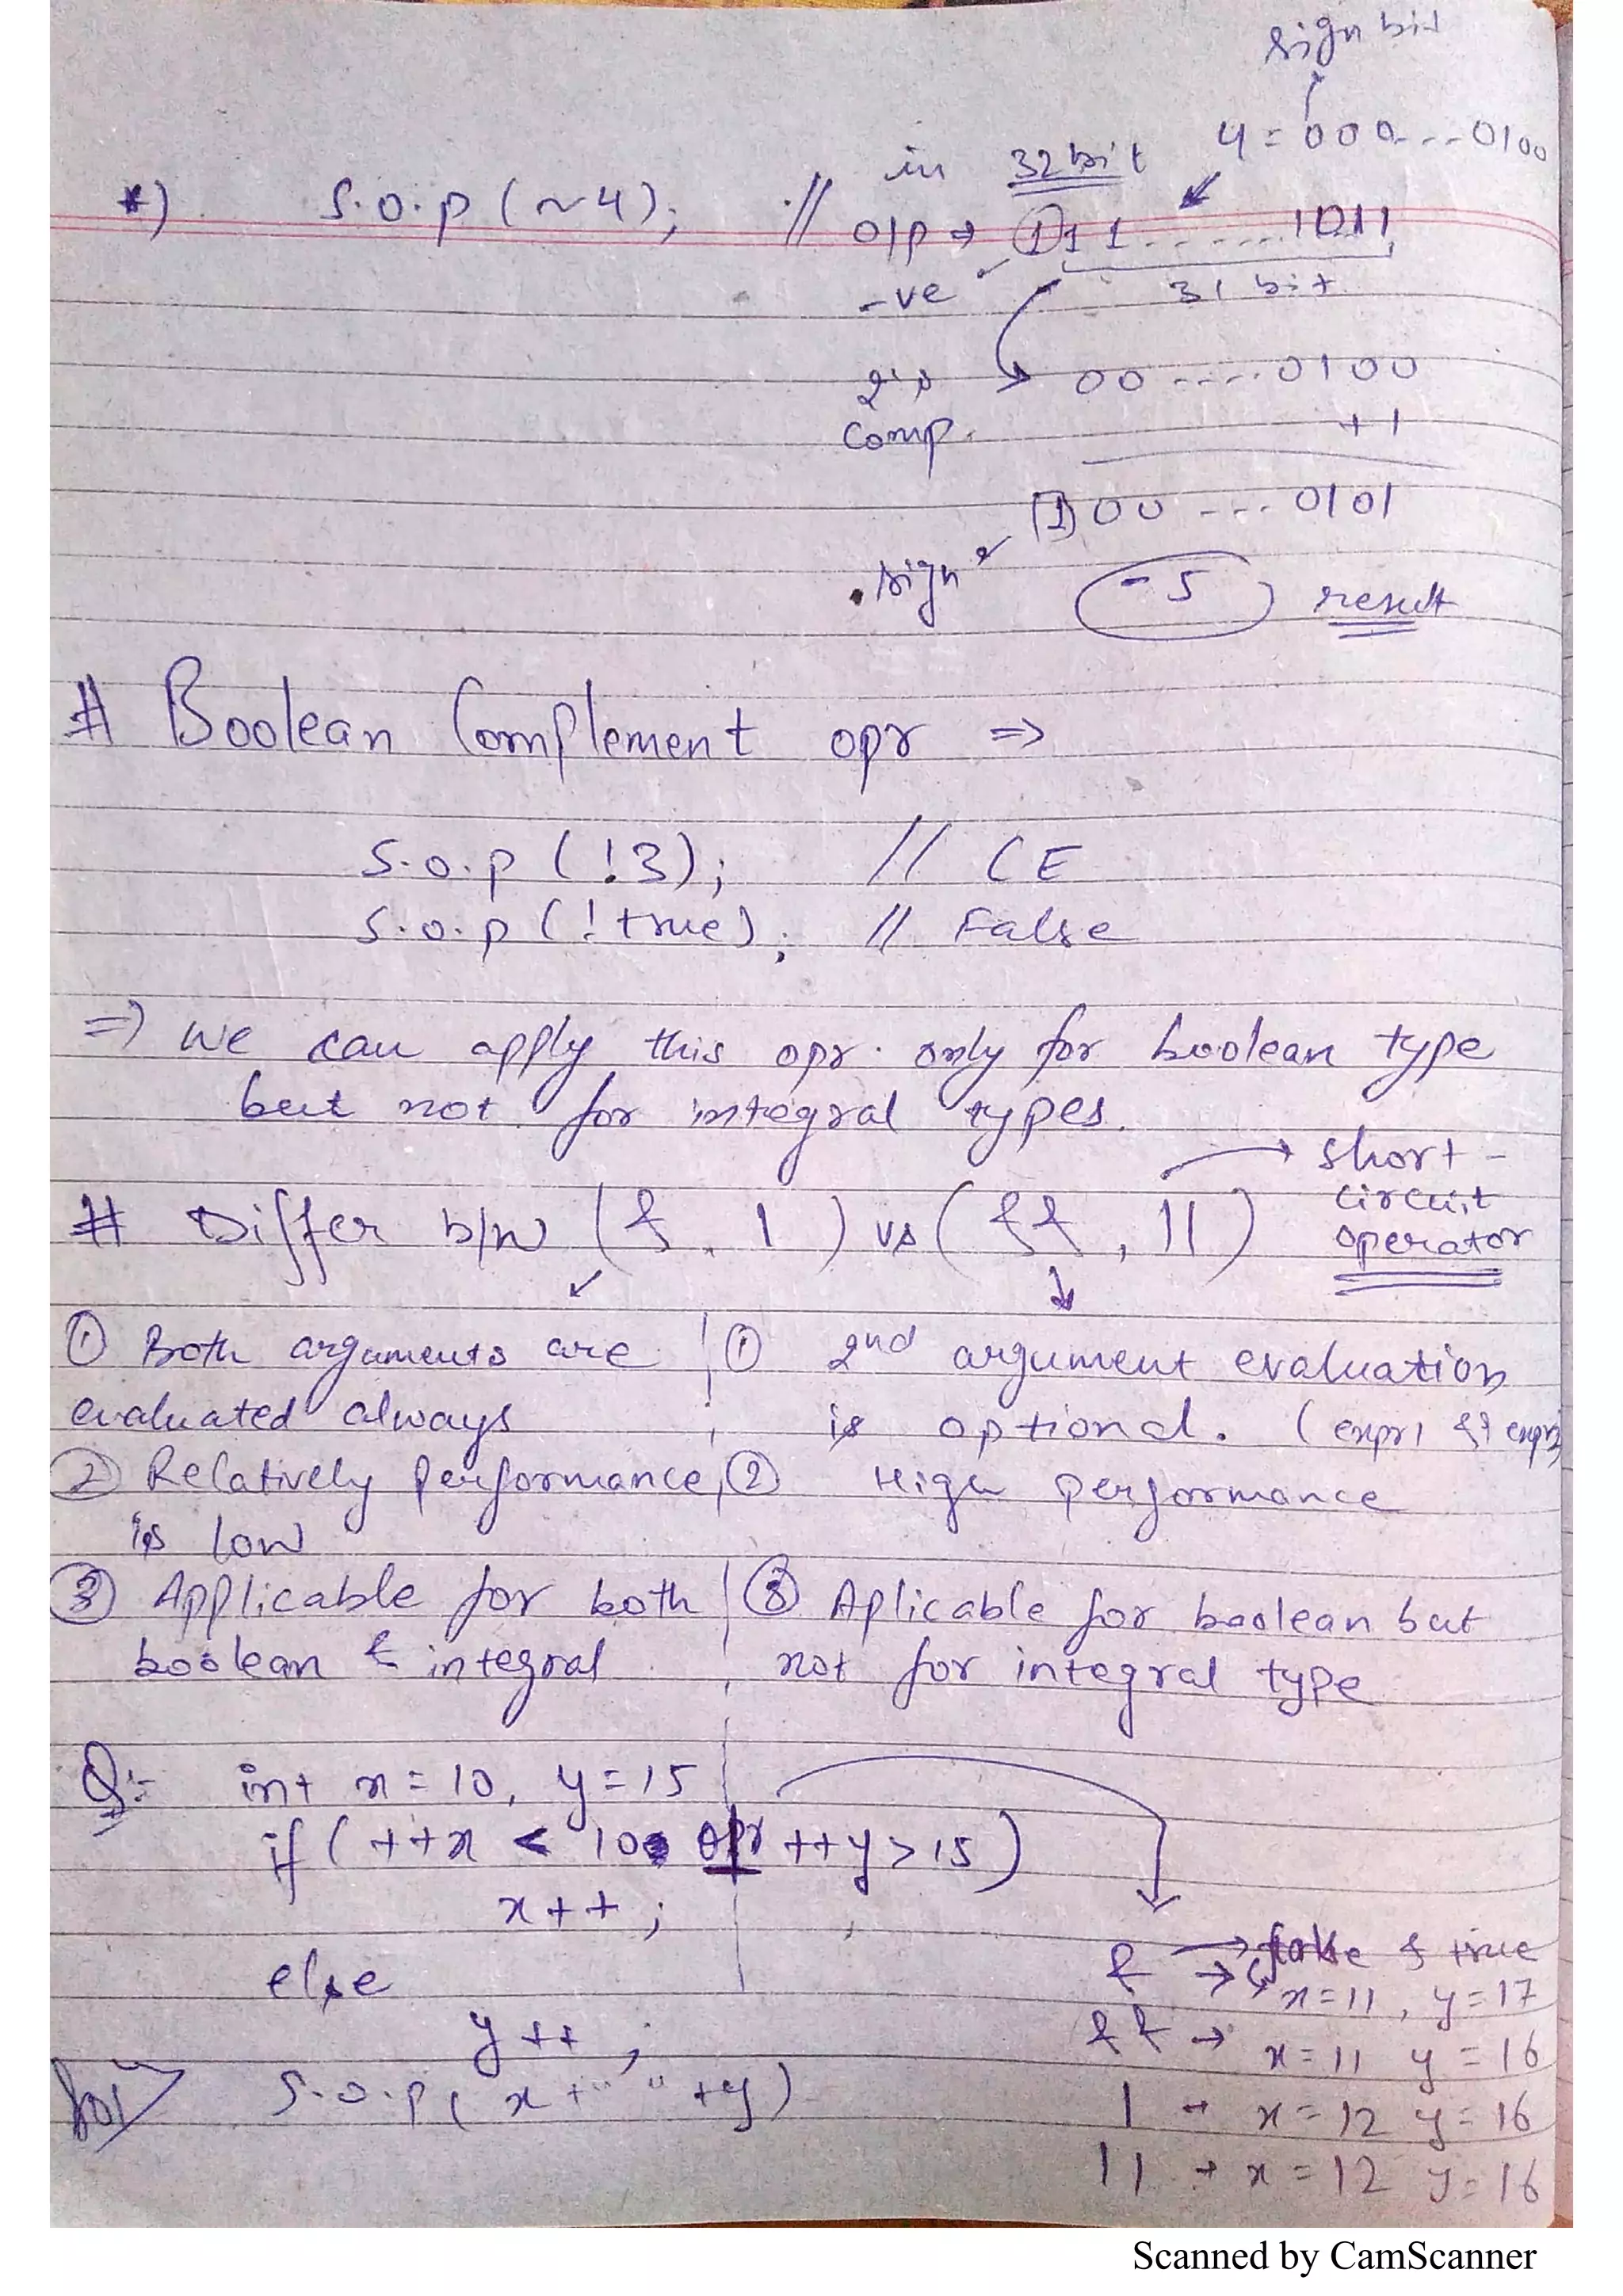 sign bit
4 = 000...0100
in 32 bit
*) S.O.P (~4); // O/P → 111.......1011
-ve 31 bit
2's → 00.....0100
Comp. +1
(1) 00 ---. 0101
sign -5 result
# Boolean Complement opr ⇒
S.O.P (!3); // CE
S.O.P (!true); // False
⇒ We can apply this opr. only for boolean type
but not for integral types.
→ short-
circuit
operator
# Differ b/w (&, |) vs (&&, ||)
① Both arguments are
evaluated always
② Relatively performance
is low
③ Applicable for both
boolean & integral
① 2nd argument evaluation
is optional. (expr1 && expr2
② High performance
③ Aplicable for boolean but
not for integral type
Q:- int x = 10, y = 15
if (++x < 10 opr ++y > 15)
x++;
else
y++;
Sol S.O.P ( x + " " + y)
& → false & true
→ x=11, y=17
&& → x=11 y=16
| → x=12 y=16
|| → x=12 y=16
Scanned by CamScanner